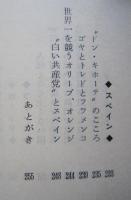 ◆スペイン◆ 233
“ドン・キホーテ”のこころ 235
ゴヤとトレドとフラメンコ 239
世界一を競うオリーブ、オレンジ 244
“白い共産党”とスペイン 248
あとがき 255